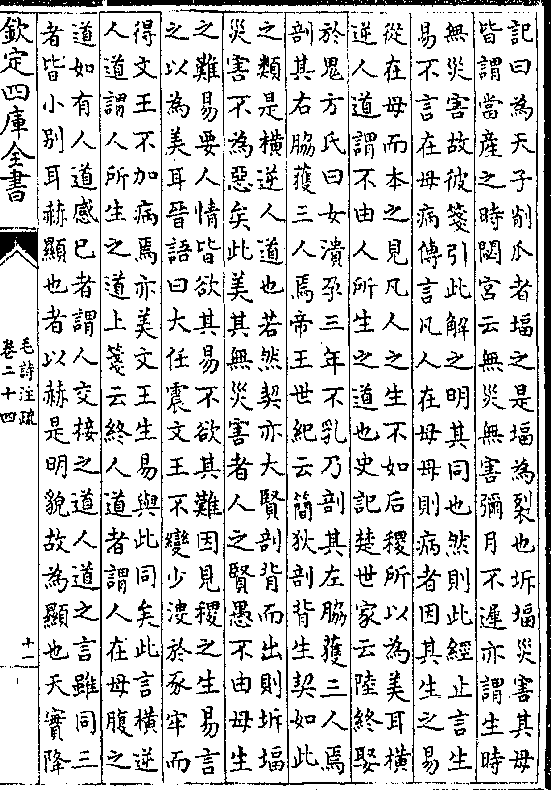 記曰為天子削瓜者堛之是堛為裂也坼堛災害其母
皆謂當産之時閟宮云無災無害彌月不遲亦謂生時
無災害故彼箋引此解之明其同也然則此經止言生
易不言在母病傳言凡人在母母則病者因其生之易
從在母而本之見凡人之生不如后稷所以為美耳橫
逆人道謂不由人所生之道也史記楚世家云陸終娶
於鬼方氏曰女潰孕三年不乳乃剖其左脇獲三人焉
剖其右脇獲三人焉帝王世紀云簡狄剖背生契如此
之類是橫逆人道也若然契亦大賢剖背而出則坼堛
災害不為惡矣此美其無災害者人之賢愚不由母生
之難易要人情皆欲其易不欲其難因見稷之生易言
之以為美耳晉語曰大任震文王不變少溲於豕牢而
得文王不加病焉亦美文王生易與此同矣此言橫逆
人道謂人所生之道上箋云終人道者謂人在母腹之
道如有人道感己者謂人交接之道人道之言雖同三
者皆小別耳赫顯也者以赫是明貌故為顯也天實降
欽定四庫全書
毛詩注疏
卷二十四
十二